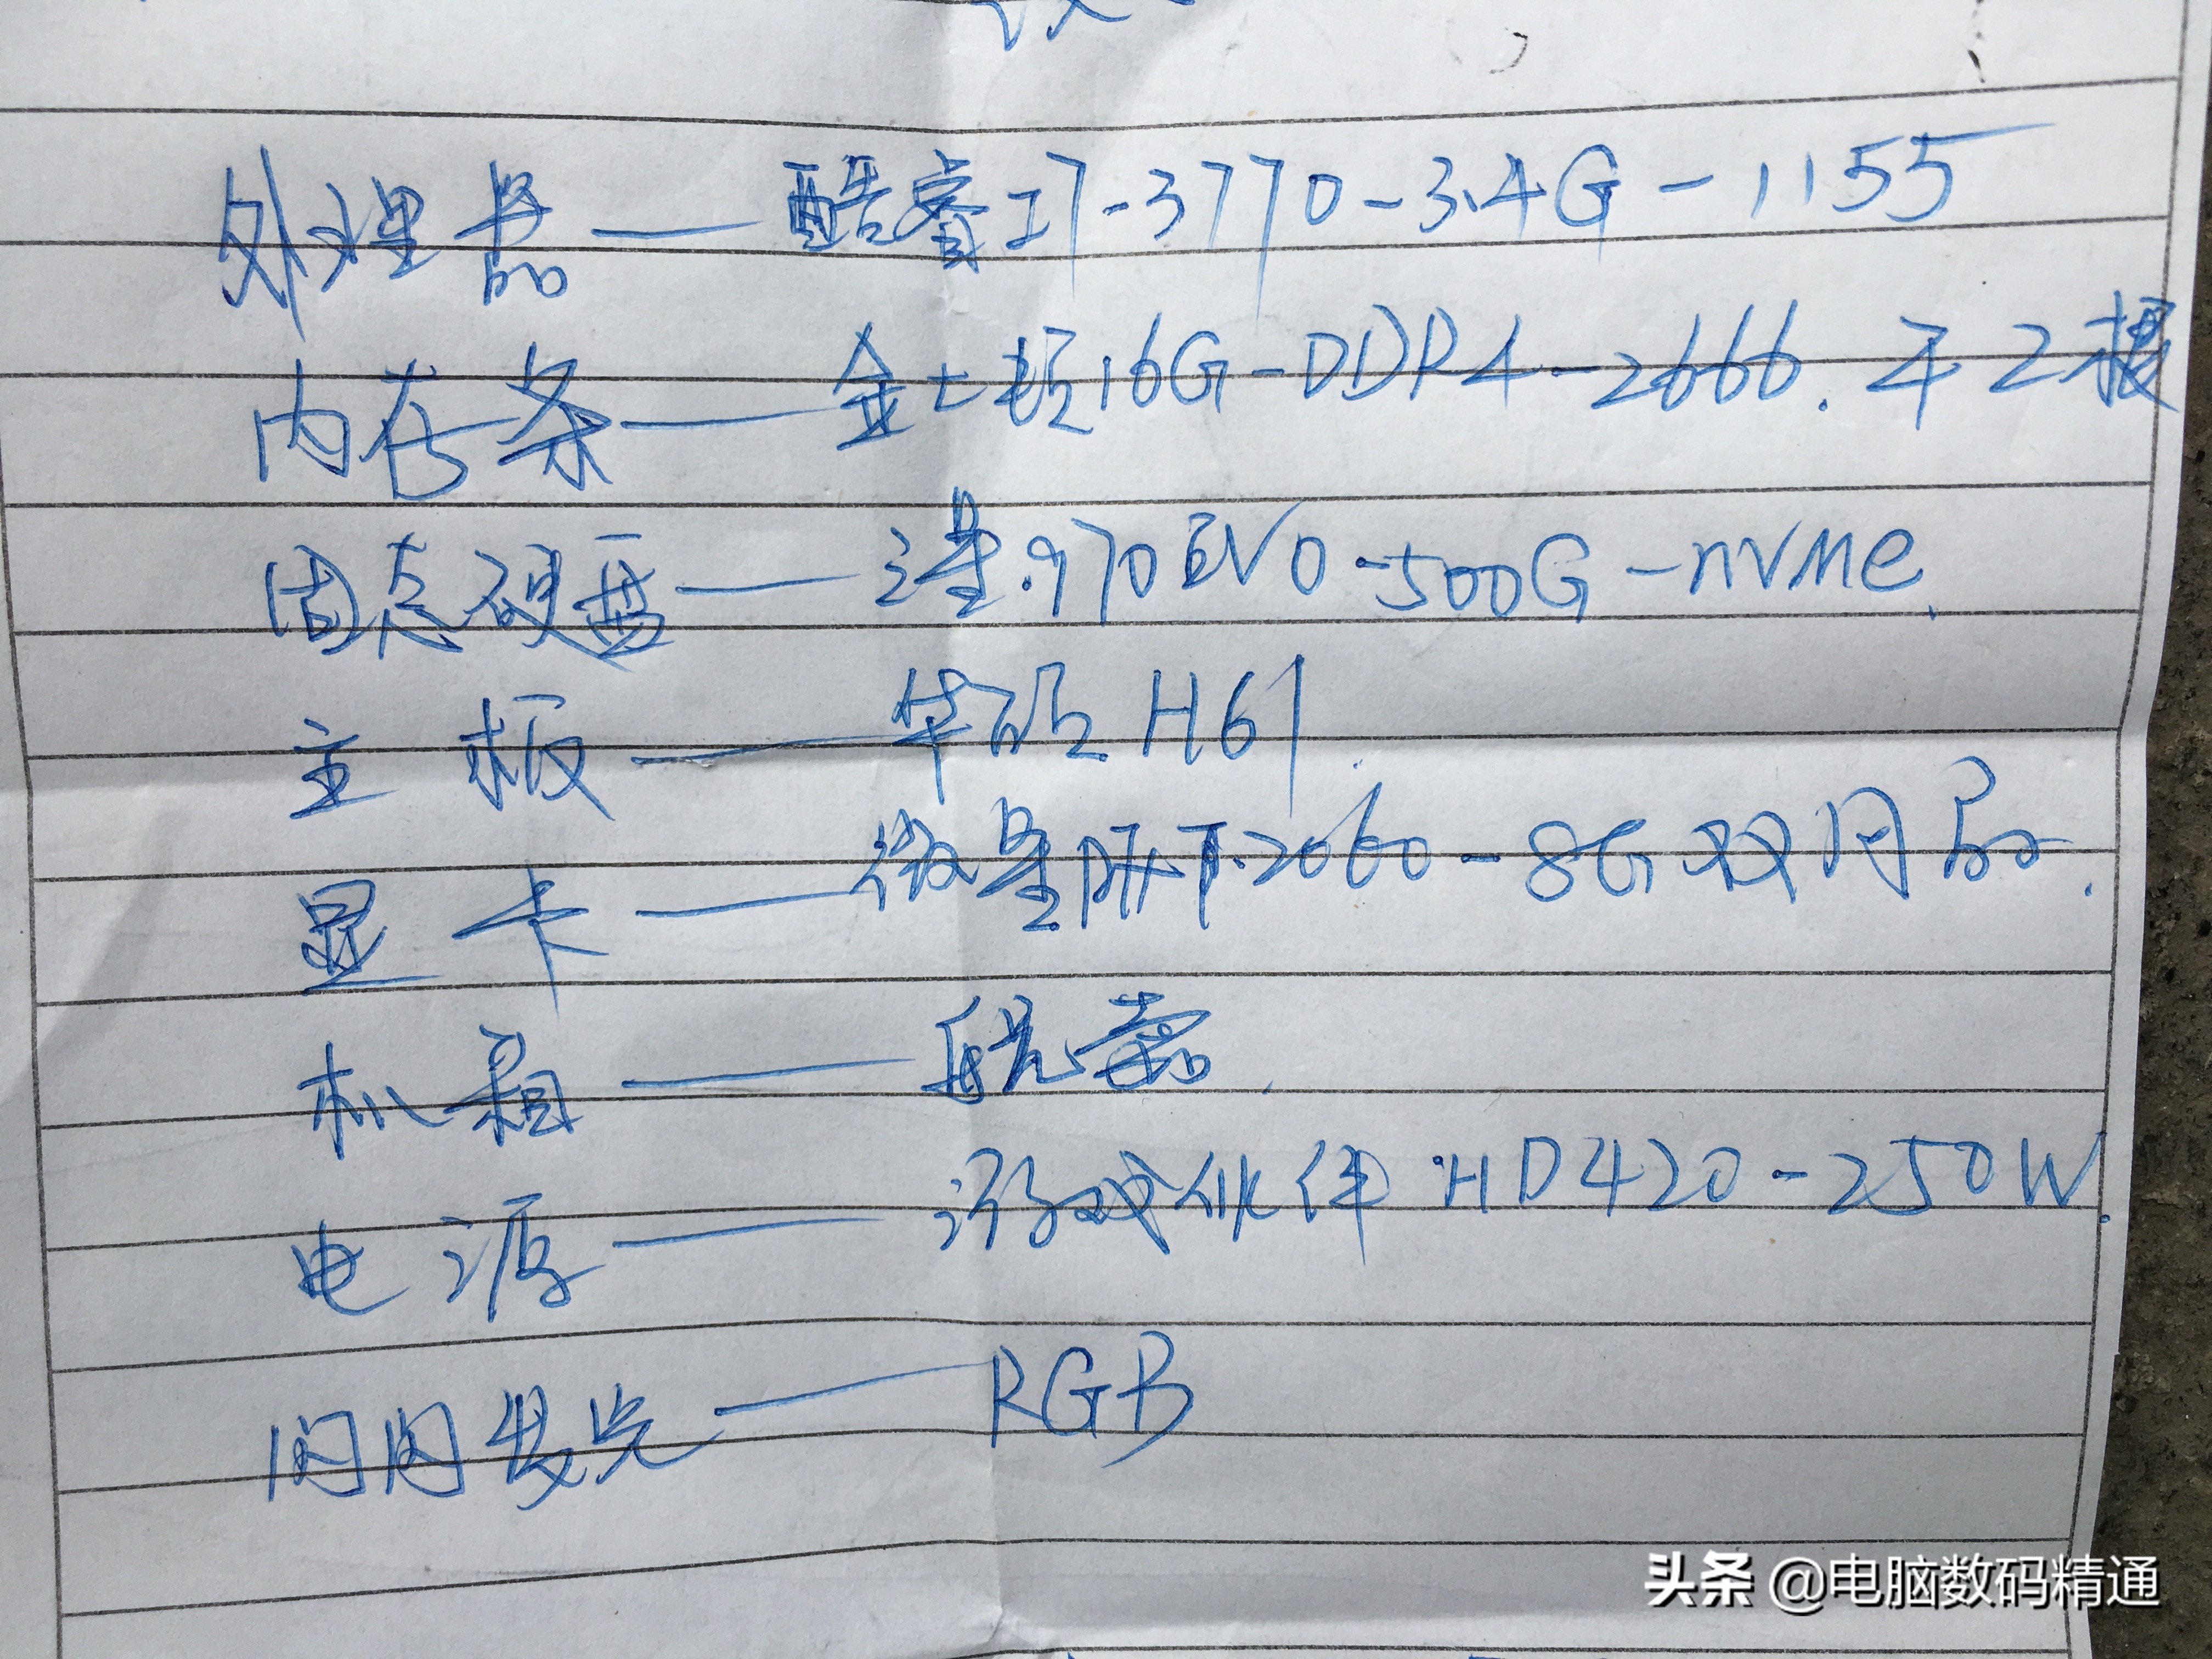 处理器——酷睿I7-3770-3.4G-1155
内存条——金士顿16G-DDR4-2666. 2根
固态硬盘——三星.970EVO-500G-nVMe.
主板——华硕H61.
显卡——微星 2060-8G双风扇.
机箱——航嘉.
电源——游戏伙伴.HD420-250W.
闪闪发光——RGB
头条 @电脑数码精通